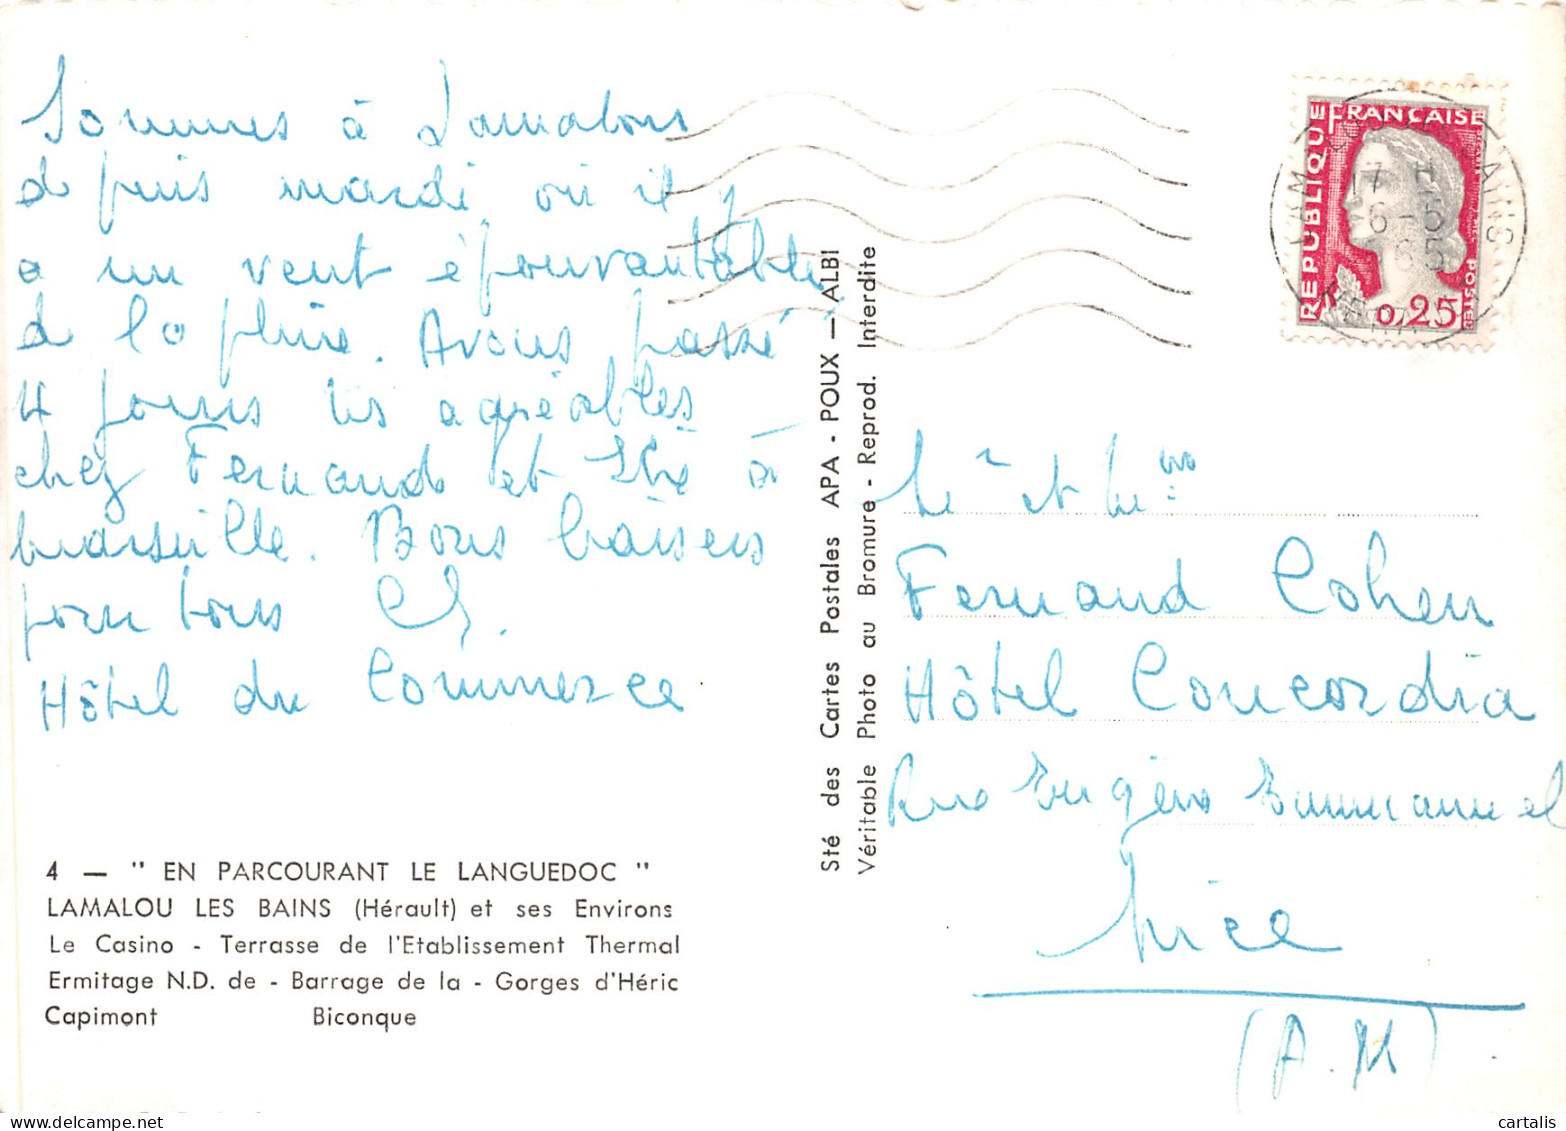 Sommes à Lamalous
depuis mardi où il y
a un vent épouvantable
de la pluie. Avons passé
4 jours très agréables
chez Fernand et à
Marseille. Bons baisers
pour tous Ch.
Hôtel du Commerce
4 — " EN PARCOURANT LE LANGUEDOC "
LAMALOU LES BAINS (Hérault) et ses Environs
Le Casino - Terrasse de l'Etablissement Thermal
Ermitage N.D. de - Barrage de la - Gorges d'Héric
Capimont Biconque
Sté des Cartes Postales APA - POUX — ALBI
Véritable Photo au Bromure - Reprod. Interdite
REPUBLIQUE FRANÇAISE
POSTES
0,25
17 H
6 - 5
65
Mr et Mme
Fernand Cohen
Hôtel Concordia
Rue Emmanuel
Nice
(A.M)
cartalis